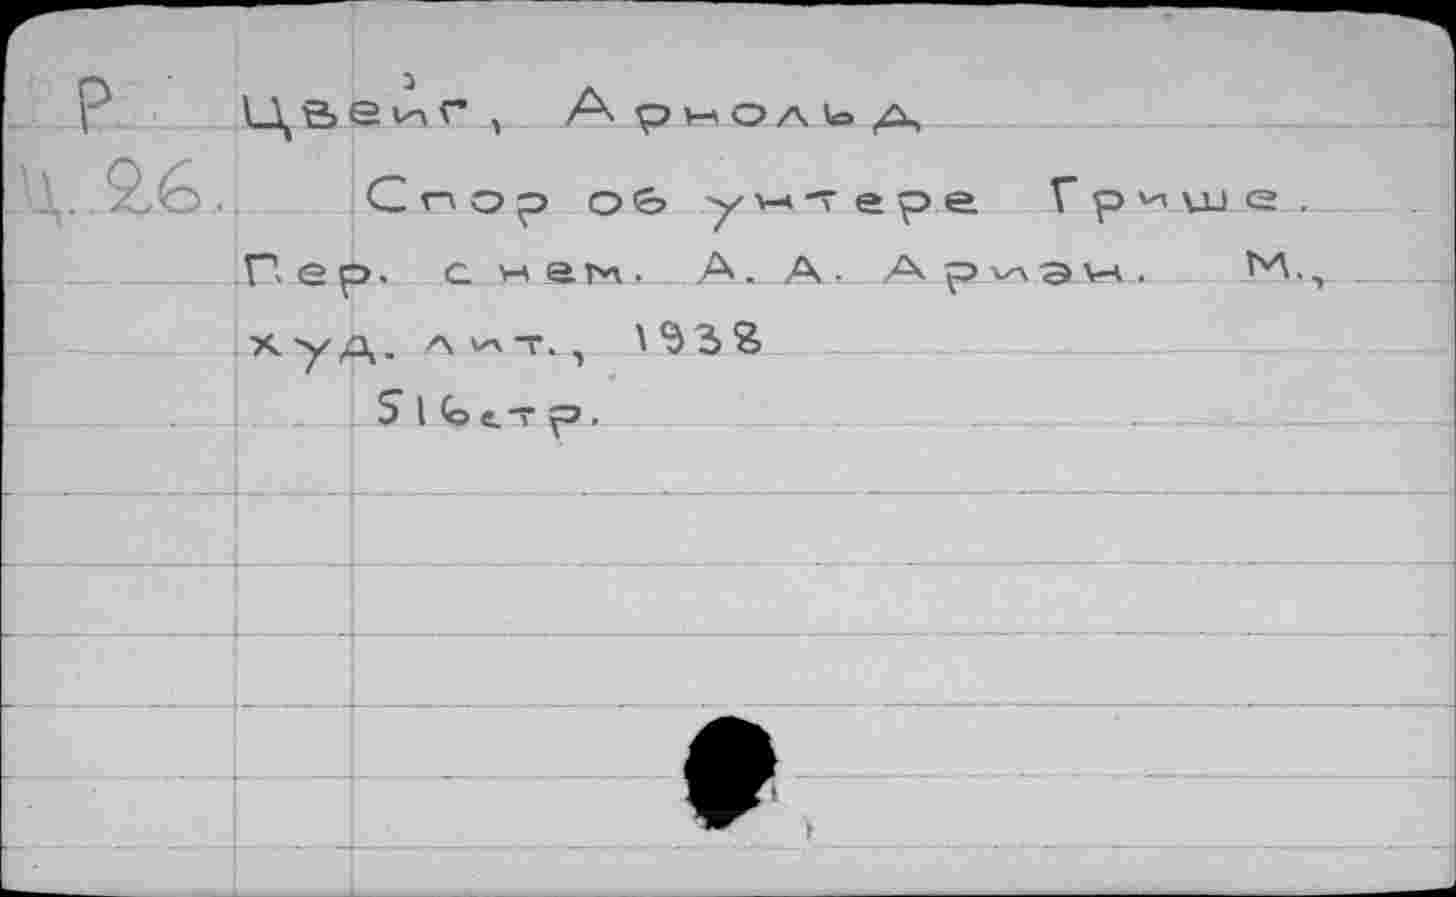 Р Цвейг, Арнольд
Ц. 26. Спор об унтере Грише.
Пер. с нем. А. А. Ариэн. М.,
худ. лит., 1938
516 стр.